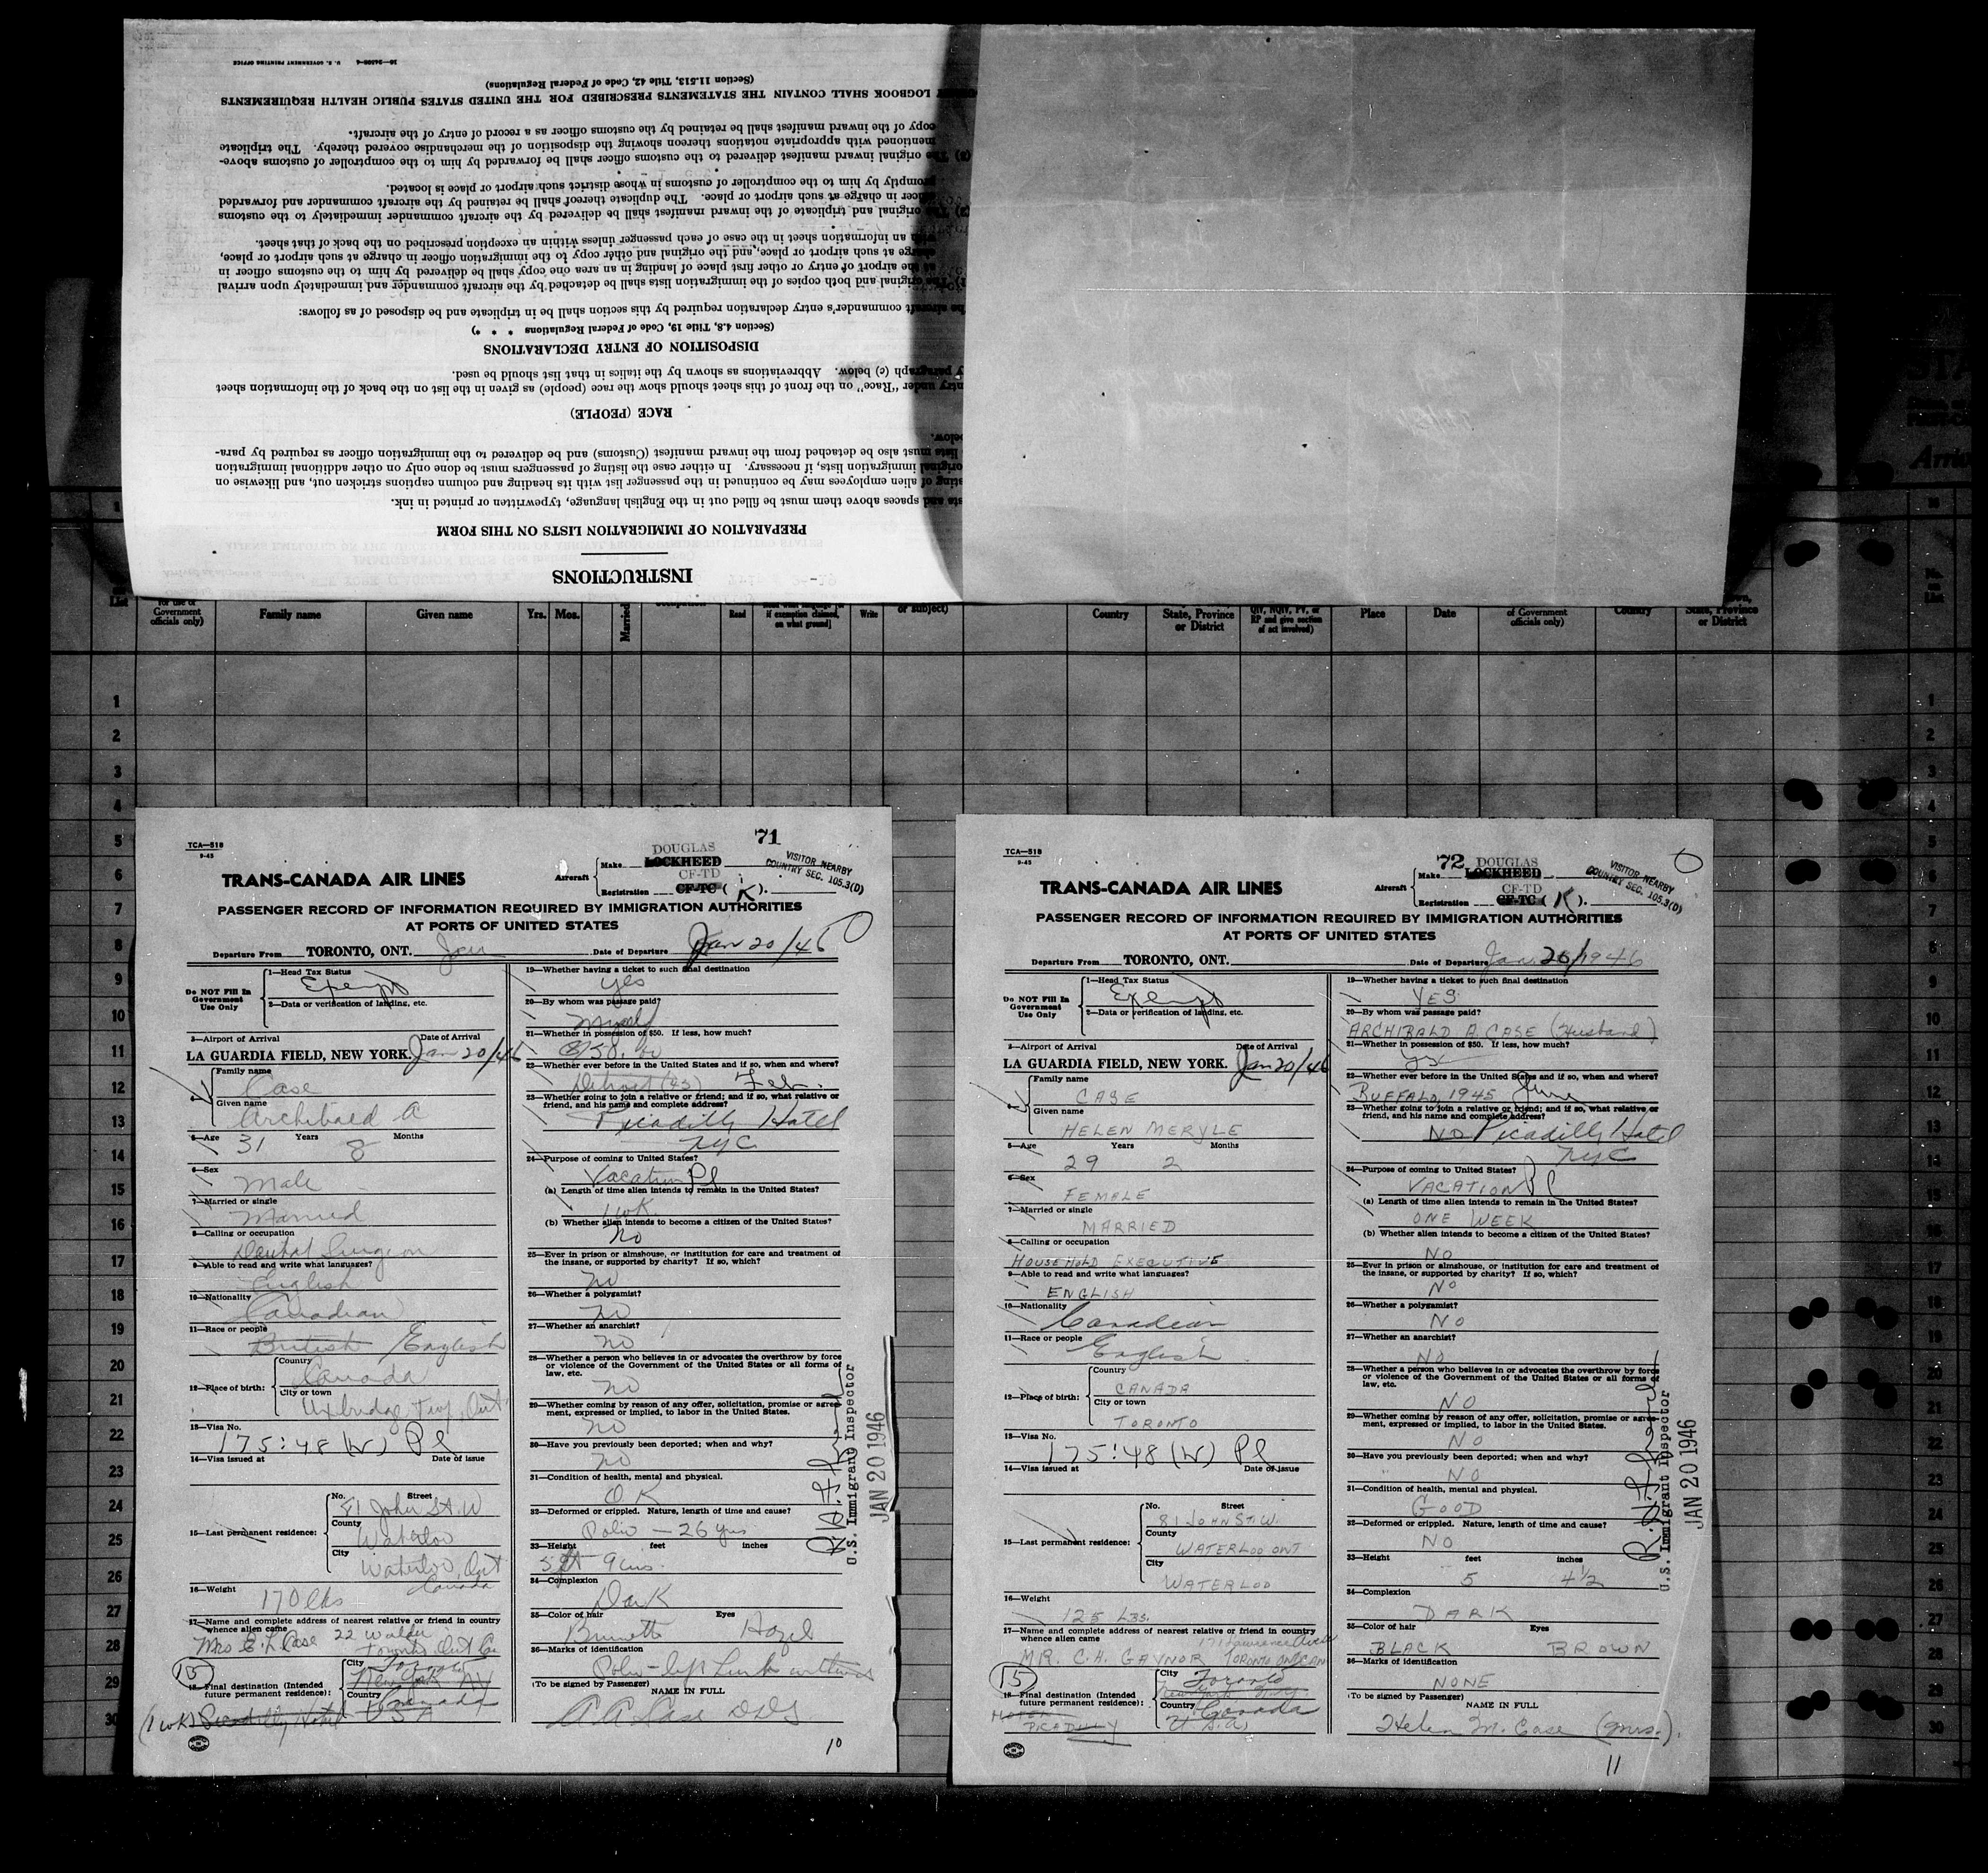 16—24500-4 U. S. GOVERNMENT PRINTING OFFICE
(Section 11.513, Title 42, Code of Federal Regulations)
LOGBOOK SHALL CONTAIN THE STATEMENTS PRESCRIBED FOR THE UNITED STATES PUBLIC HEALTH REQUIREMENTS
copy of the inward manifest shall be retained by the customs officer as a record of entry of the aircraft.
mentioned with appropriate notations thereon showing the disposition of the merchandise covered thereby. The triplicate
(3) The original inward manifest delivered to the customs officer shall be forwarded by him to the comptroller of customs above-
promptly by him to the comptroller of customs in whose district such airport or place is located.
officer in charge at such airport or place. The duplicate thereof shall be retained by the aircraft commander and forwarded
(2) The original and triplicate of the inward manifest shall be delivered by the aircraft commander immediately to the customs
with an information sheet in the case of each passenger unless within an exception prescribed on the back of that sheet.
charge at such airport or place, and the original and other copy to the immigration officer in charge at such airport or place,
at the airport of entry or other first place of landing in an area one copy shall be delivered by him to the customs officer in
(1) The original and both copies of the immigration lists shall be detached by the aircraft commander and immediately upon arrival
The aircraft commander's entry declaration required by this section shall be in triplicate and be disposed of as follows:
(Section 4.8, Title 19, Code of Federal Regulations * * *)
DISPOSITION OF ENTRY DECLARATIONS
by paragraph (c) below. Abbreviations as shown by the italics in that list should be used.
entry under "Race" on the front of this sheet should show the race (people) as given in the list on the back of the information sheet
RACE (PEOPLE)
below.
lists must also be detached from the inward manifest (Customs) and be delivered to the immigration officer as required by para-
original immigration lists, if necessary. In either case the listing of passengers must be done only on other additional immigration
listing of alien employees may be continued in the passenger list with its heading and column captions stricken out, and likewise on
lists and spaces above them must be filled out in the English language, typewritten or printed in ink.
PREPARATION OF IMMIGRATION LISTS ON THIS FORM
INSTRUCTIONS
List
Government officials only)
Family name
Given name
Yrs. Mos.
Married
Read
if exemption claimed, on what ground]
Write
or subject)
Country
State, Province or District
QIV, NQIV, PV, or RP and give section of act involved)
Place
Date
of Government officials only)
Country
State, Province or District
1
2
3
4
5
6
7
8
9
10
11
12
13
14
15
16
17
18
19
20
21
22
23
24
25
26
27
28
29
30
71
TCA—518
9-45
TRANS-CANADA AIR LINES
Aircraft
Make DOUGLAS LOCKHEED
Registration CF-TD CF-TC (K).
VISITOR NEARBY
COUNTRY SEC. 105.3(D)
PASSENGER RECORD OF INFORMATION REQUIRED BY IMMIGRATION AUTHORITIES
AT PORTS OF UNITED STATES
Departure From TORONTO, ONT. Jan Date of Departure Jan 20/46
Do NOT Fill In Government Use Only
1—Head Tax Status
Exempt
2—Data or verification of landing, etc.
3—Airport of Arrival Date of Arrival
LA GUARDIA FIELD, NEW YORK. Jan 20/46
4— Family name
Case
Given name
Archibald A
5—Age 31 Years 8 Months
6—Sex
Male
7—Married or single
Married
8—Calling or occupation
Dental Surgeon
9—Able to read and write what languages?
English
10—Nationality
Canadian
11—Race or people
British English
12—Place of birth:
Country
Canada
City or town
Uxbridge Twp, Ont
13—Visa No.
175:48 (W) Pl
14—Visa issued at Date of issue
15—Last permanent residence:
No. Street
81 John St. W
County
Waterloo
City
Waterloo, Ont
Canada
16—Weight
170 lbs
17—Name and complete address of nearest relative or friend in country whence alien came
Mrs E. L. Case 22
Toronto, Ont Can
15
18—Final destination (Intended future permanent residence):
City Toronto
New York NY
Country Canada
USA
(1 wk) Piccadilly Hotel
19—Whether having a ticket to such final destination
Yes
20—By whom was passage paid?
Myself
21—Whether in possession of $50. If less, how much?
22—Whether ever before in the United States and if so, when and where?
Detroit (45) Feb.
23—Whether going to join a relative or friend; and if so, what relative or friend, and his name and complete address?
Picadilly Hotel
NYC
24—Purpose of coming to United States?
Vacation Pl
(a) Length of time alien intends to remain in the United States?
1 wk.
(b) Whether alien intends to become a citizen of the United States?
No
25—Ever in prison or almshouse, or institution for care and treatment of the insane, or supported by charity? If so, which?
No
26—Whether a polygamist?
No
27—Whether an anarchist?
no
28—Whether a person who believes in or advocates the overthrow by force or violence of the Government of the United States or all forms of law, etc.
no
29—Whether coming by reason of any offer, solicitation, promise or agreement, expressed or implied, to labor in the United States.
no
30—Have you previously been deported; when and why?
no
31—Condition of health, mental and physical.
OK
32—Deformed or crippled. Nature, length of time and cause?
Polio — 26 yrs
33—Height feet inches
5 ft 9 ins.
34—Complexion
Dark
35—Color of hair Eyes
Brunette Hazel
36—Marks of identification
Polio - left limb
(To be signed by Passenger)
NAME IN FULL
A A Case DDS
U.S. Immigrant Inspector
JAN 20 1946
10
72
TCA—518
9-45
TRANS-CANADA AIR LINES
Aircraft
Make DOUGLAS LOCKHEED
Registration CF-TD CF-TC (K).
VISITOR NEARBY
COUNTRY SEC. 105.3(D)
PASSENGER RECORD OF INFORMATION REQUIRED BY IMMIGRATION AUTHORITIES
AT PORTS OF UNITED STATES
Departure From TORONTO, ONT. Date of Departure Jan. 20/1946
Do NOT Fill In Government Use Only
1—Head Tax Status
Exempt
2—Data or verification of landing, etc.
3—Airport of Arrival Date of Arrival
LA GUARDIA FIELD, NEW YORK. Jan 20/46
4— Family name
CASE
Given name
HELEN MERYLE
5—Age 29 Years 2 Months
6—Sex
FEMELE
7—Married or single
MARRIED
8—Calling or occupation
HOUSEHOLD EXECUTIVE
9—Able to read and write what languages?
ENGLISH
10—Nationality
Canadian
11—Race or people
English
12—Place of birth:
Country
CANADA
City or town
TORONTO
13—Visa No.
175:48 (W) Pl
14—Visa issued at Date of issue
15—Last permanent residence:
No. Street
81 JOHN ST. W.
County
WATERLOO ONT
City
WATERLOO
16—Weight
125 LBS.
17—Name and complete address of nearest relative or friend in country whence alien came
171 Lawrence Ave
MR. C.H. GAYNOR TORONTO ONT CAN
15
18—Final destination (Intended future permanent residence):
City Toronto
New York
Country Canada
U.S.A.
HOTEL
PICADILLY
19—Whether having a ticket to such final destination
YES
20—By whom was passage paid?
ARCHIBALD A. CASE (Husband)
21—Whether in possession of $50. If less, how much?
yes
22—Whether ever before in the United States and if so, when and where?
BUFFALO, 1945 June
23—Whether going to join a relative or friend; and if so, what relative or friend, and his name and complete address?
NO Picadilly Hotel
NYC
24—Purpose of coming to United States?
VACATION Pl
(a) Length of time alien intends to remain in the United States?
ONE WEEK
(b) Whether alien intends to become a citizen of the United States?
NO
25—Ever in prison or almshouse, or institution for care and treatment of the insane, or supported by charity? If so, which?
NO
26—Whether a polygamist?
NO
27—Whether an anarchist?
NO
28—Whether a person who believes in or advocates the overthrow by force or violence of the Government of the United States or all forms of law, etc.
NO
29—Whether coming by reason of any offer, solicitation, promise or agreement, expressed or implied, to labor in the United States.
NO
30—Have you previously been deported; when and why?
NO
31—Condition of health, mental and physical.
GOOD
32—Deformed or crippled. Nature, length of time and cause?
NO
33—Height feet inches
5 4½
34—Complexion
DARK
35—Color of hair Eyes
BLACK BROWN
36—Marks of identification
NONE
(To be signed by Passenger)
NAME IN FULL
Helen M. Case (Mrs.).
U.S. Immigrant Inspector
JAN 20 1946
11